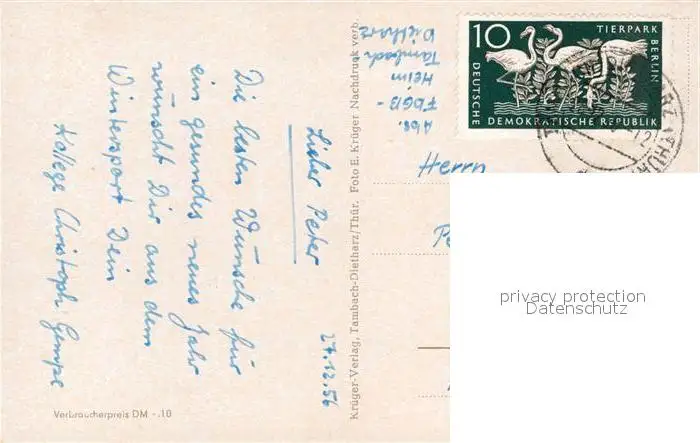 27.12.56
Lieber Peter
Die besten Wünsche für
ein gesundes neues Jahr
wünscht Dir aus dem
Wintersport Dein
Kollege Christoph Gempe
Verbraucherpreis DM -.10
Krüger-Verlag, Tambach-Dietharz/Thür. Foto E. Krüger Nachdruck verb.
Abs.
FDGB-
Heim
Tambach
Dietharz
10
TIERPARK
BERLIN
DEUTSCHE
DEMOKRATISCHE REPUBLIK
Herrn
privacy protection
Datenschutz